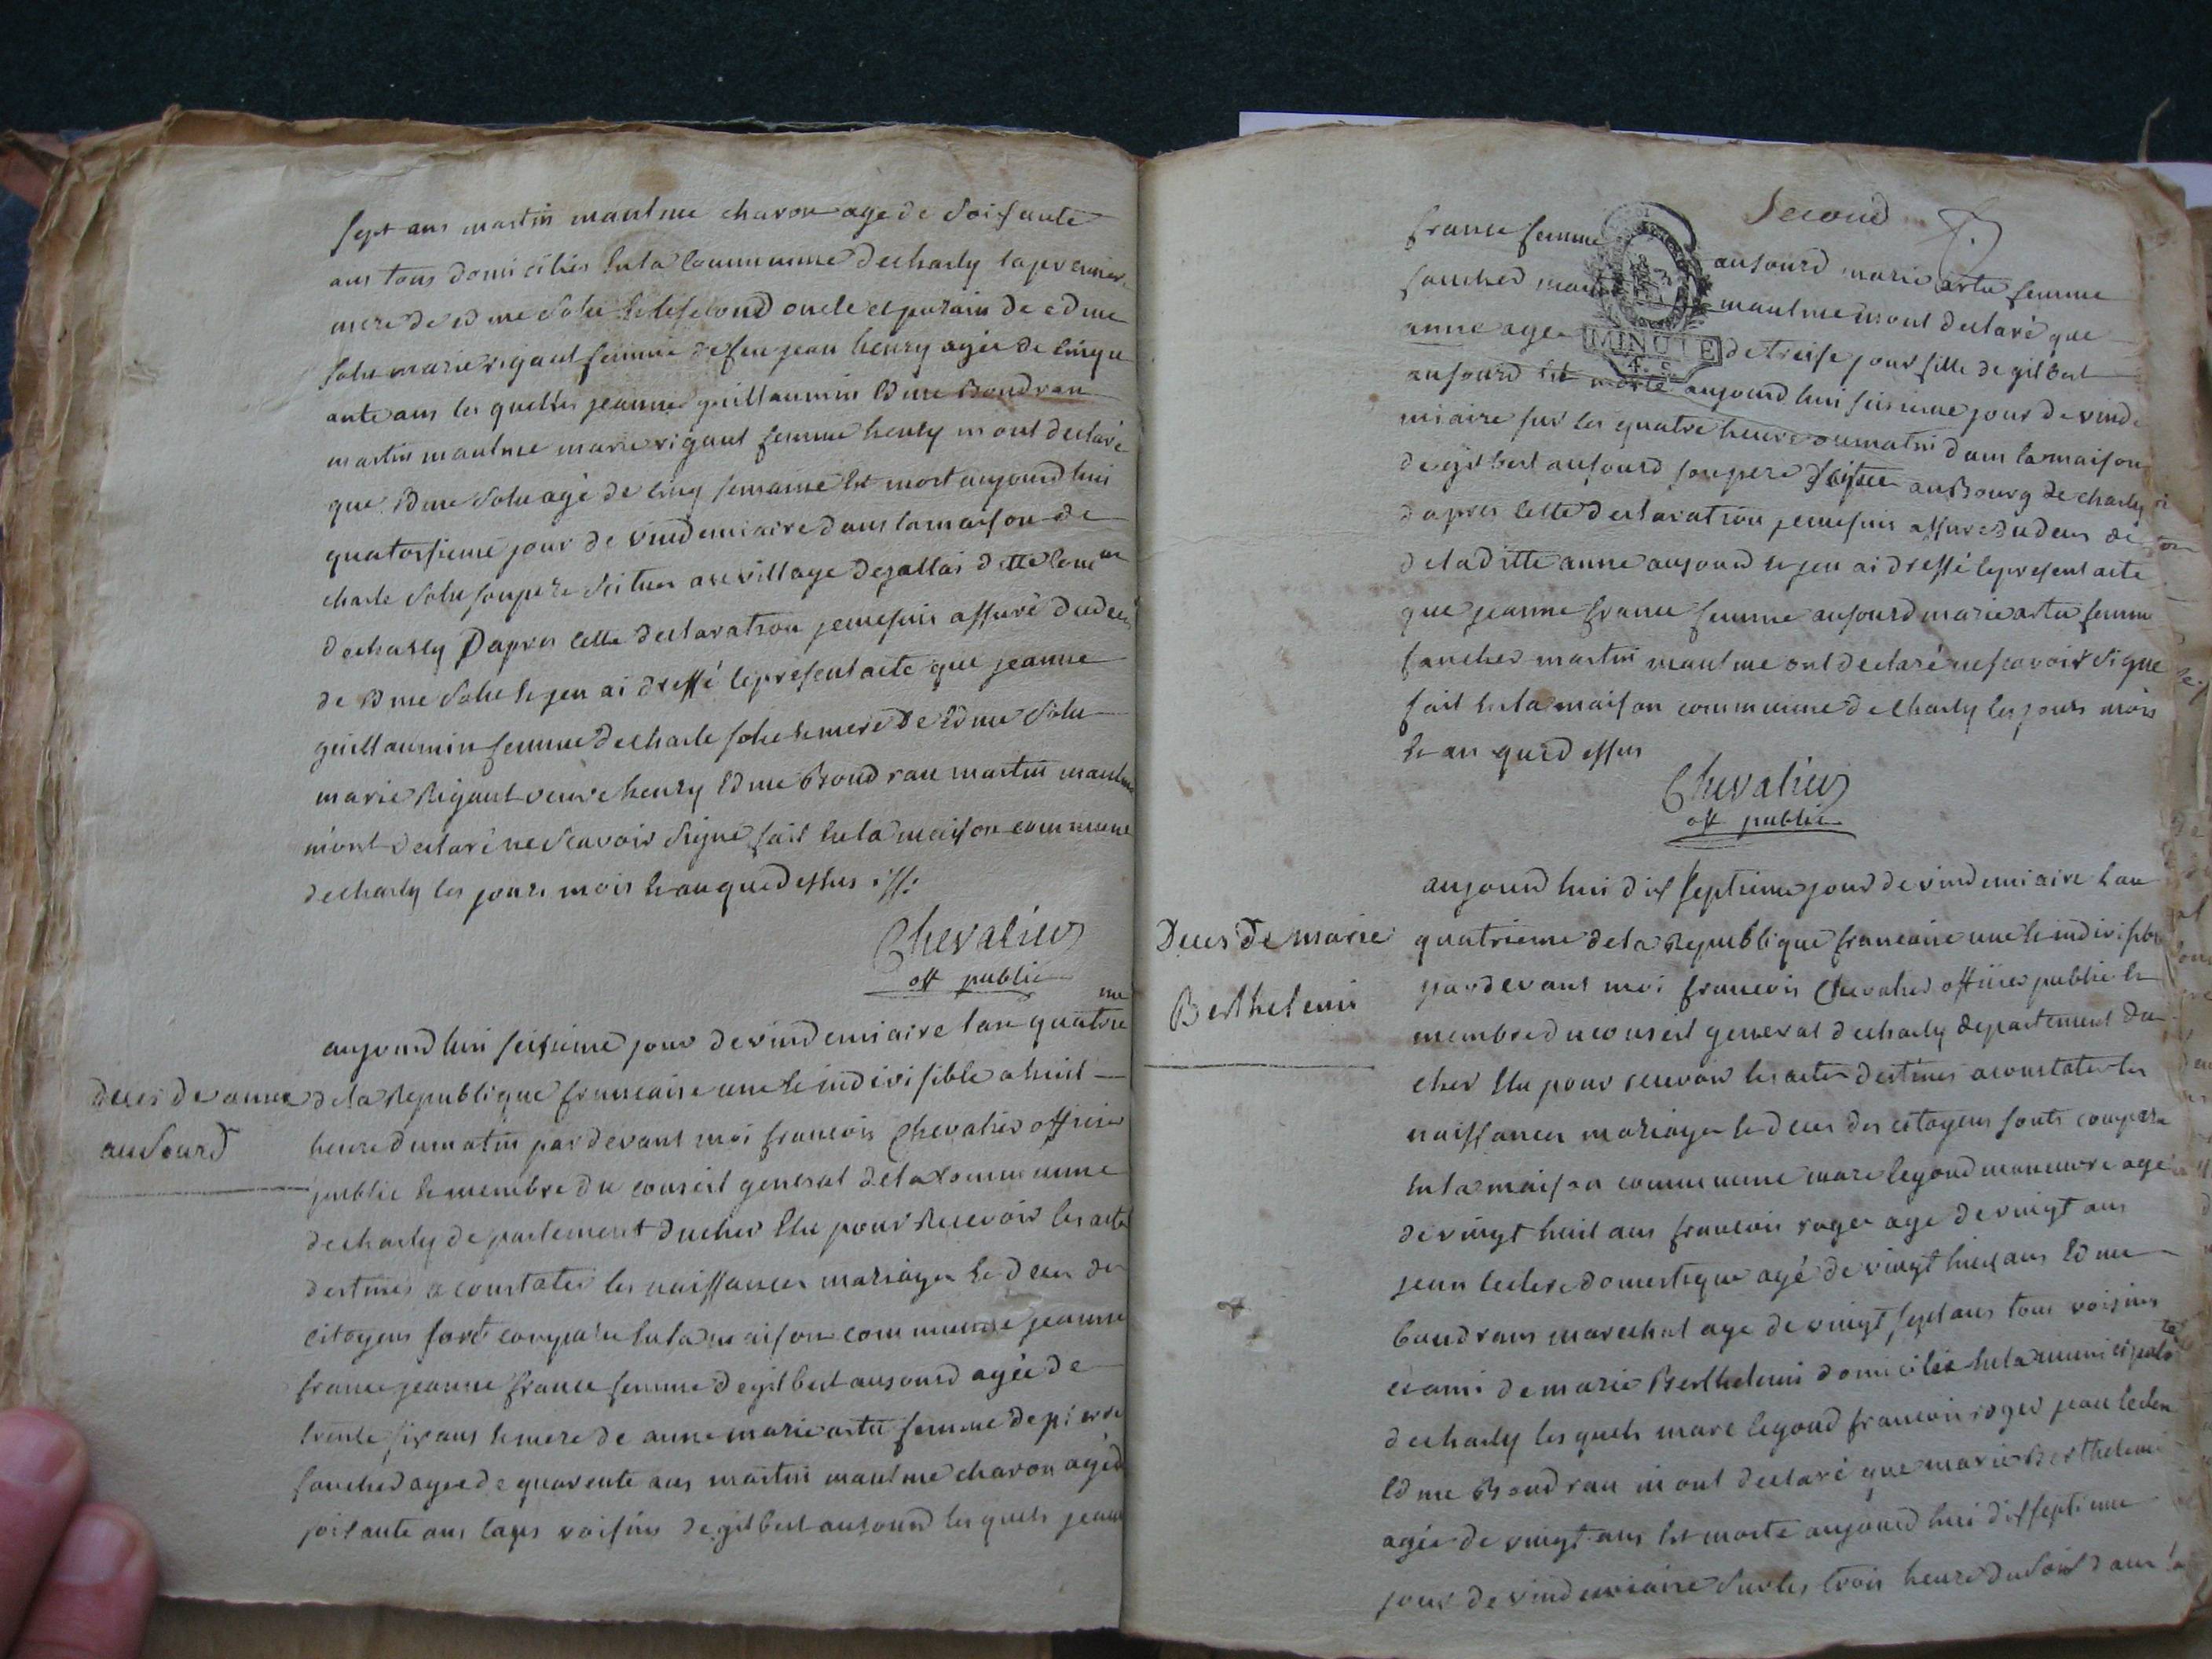 sept ans martin maulme charon age de soisante
ans tous domicilies en la commune de charly la premier
mere de edme solu et le second oncle et parain de edme
solu marie rigaut femme de feu jean henry agée de cinqu
ante ans les quelles jeanne guillaumin edme Boudran
martin maulme marie rigaut femme henry m ont declaré
que edme solu agé de cinq semaine est mort aujourd hui
quatorsieme jour de vindemiaire dans la maison de
charle solu son pere scitues au village degallais dette comme
de charly Dapres cette declaration je me suis assuré du deces
de edme solu et jen ai dressé le present acte que jeanne
guillaumin femme de charle solu et mere de edme solu
marie Rigaut veuve henry edme Boudran martin maulme
m'ont declaré ne scavoir signé fait en la maison commune
de charly les jours mois et an que dessus
Chevalier
off public
Deces de anne
ausourd
aujourd hui seisieme jour de vindemiaire lan quatrieme
de la Republique francaise une et indivisible a huit
heure du matin par devant moi francois Chevalier officier
public et membre du conseil general de la commune
de charly departement du cher elu pour Recevoir les acte
destinés a constater les naissances mariages et deces des
citoyens sont comparu en la maison commune jeanne
france jeanne france femme de gilbert ausourd agée de
trente six ans et mere de anne marie artu femme de pierre
foucher agee de quarente ans martin maulme charon agé de
soisante ans tous voisins de gilbert ausourd les quels jeanne
second
france femme ausourd marie artu femme
foucher martin maulme mont declaré que
anne agee de treise jour fille de gilbert
ausourd est morte aujourd hui seisieme jour de vinde
miaire sur les quatre heure du matin dans la maison
de gilbert ausourd son pere scituee au Bourg de charly
dapres cette declaration je me suis assure du deces de
de la ditte anne ausourd et jen ai dressé le present acte
que jeanne france femme ausourd marie artu femme
foucher martin maulme ont declaré ne scavoir signe
fait en la maison commune de charly les jours mois
et an que dessus
Chevalier
off public
MINUTE
4. S
Deces de marie
Berthelemi
aujourd hui dix septieme jour de vindemiaire l an
quatrieme de la Republique francaise une et indivisible
par devant moi francois Chevalier officier public et
membre du conseil general de charly departement du
cher elu pour recevoir les actes destines a constater les
naissances mariages et deces des citoyens sonts comparu
en la maison commune marc legoud maneuvre agé
de vingt huit ans francois roger age de vingt ans
jean leclere domestique agé de vingt huit ans edme
boudrans marechal age de vingt sept ans tous voisins
et ami de marie Berthelemi domicilié en la municipalité
de charly les quels marc legoud francois roger jean leclere
edme Boudran m ont declaré que marie Berthelemi
agée de vingt ans est morte aujourd hui dix septieme
jour de vindemiaire sur les trois heure du soir dans la